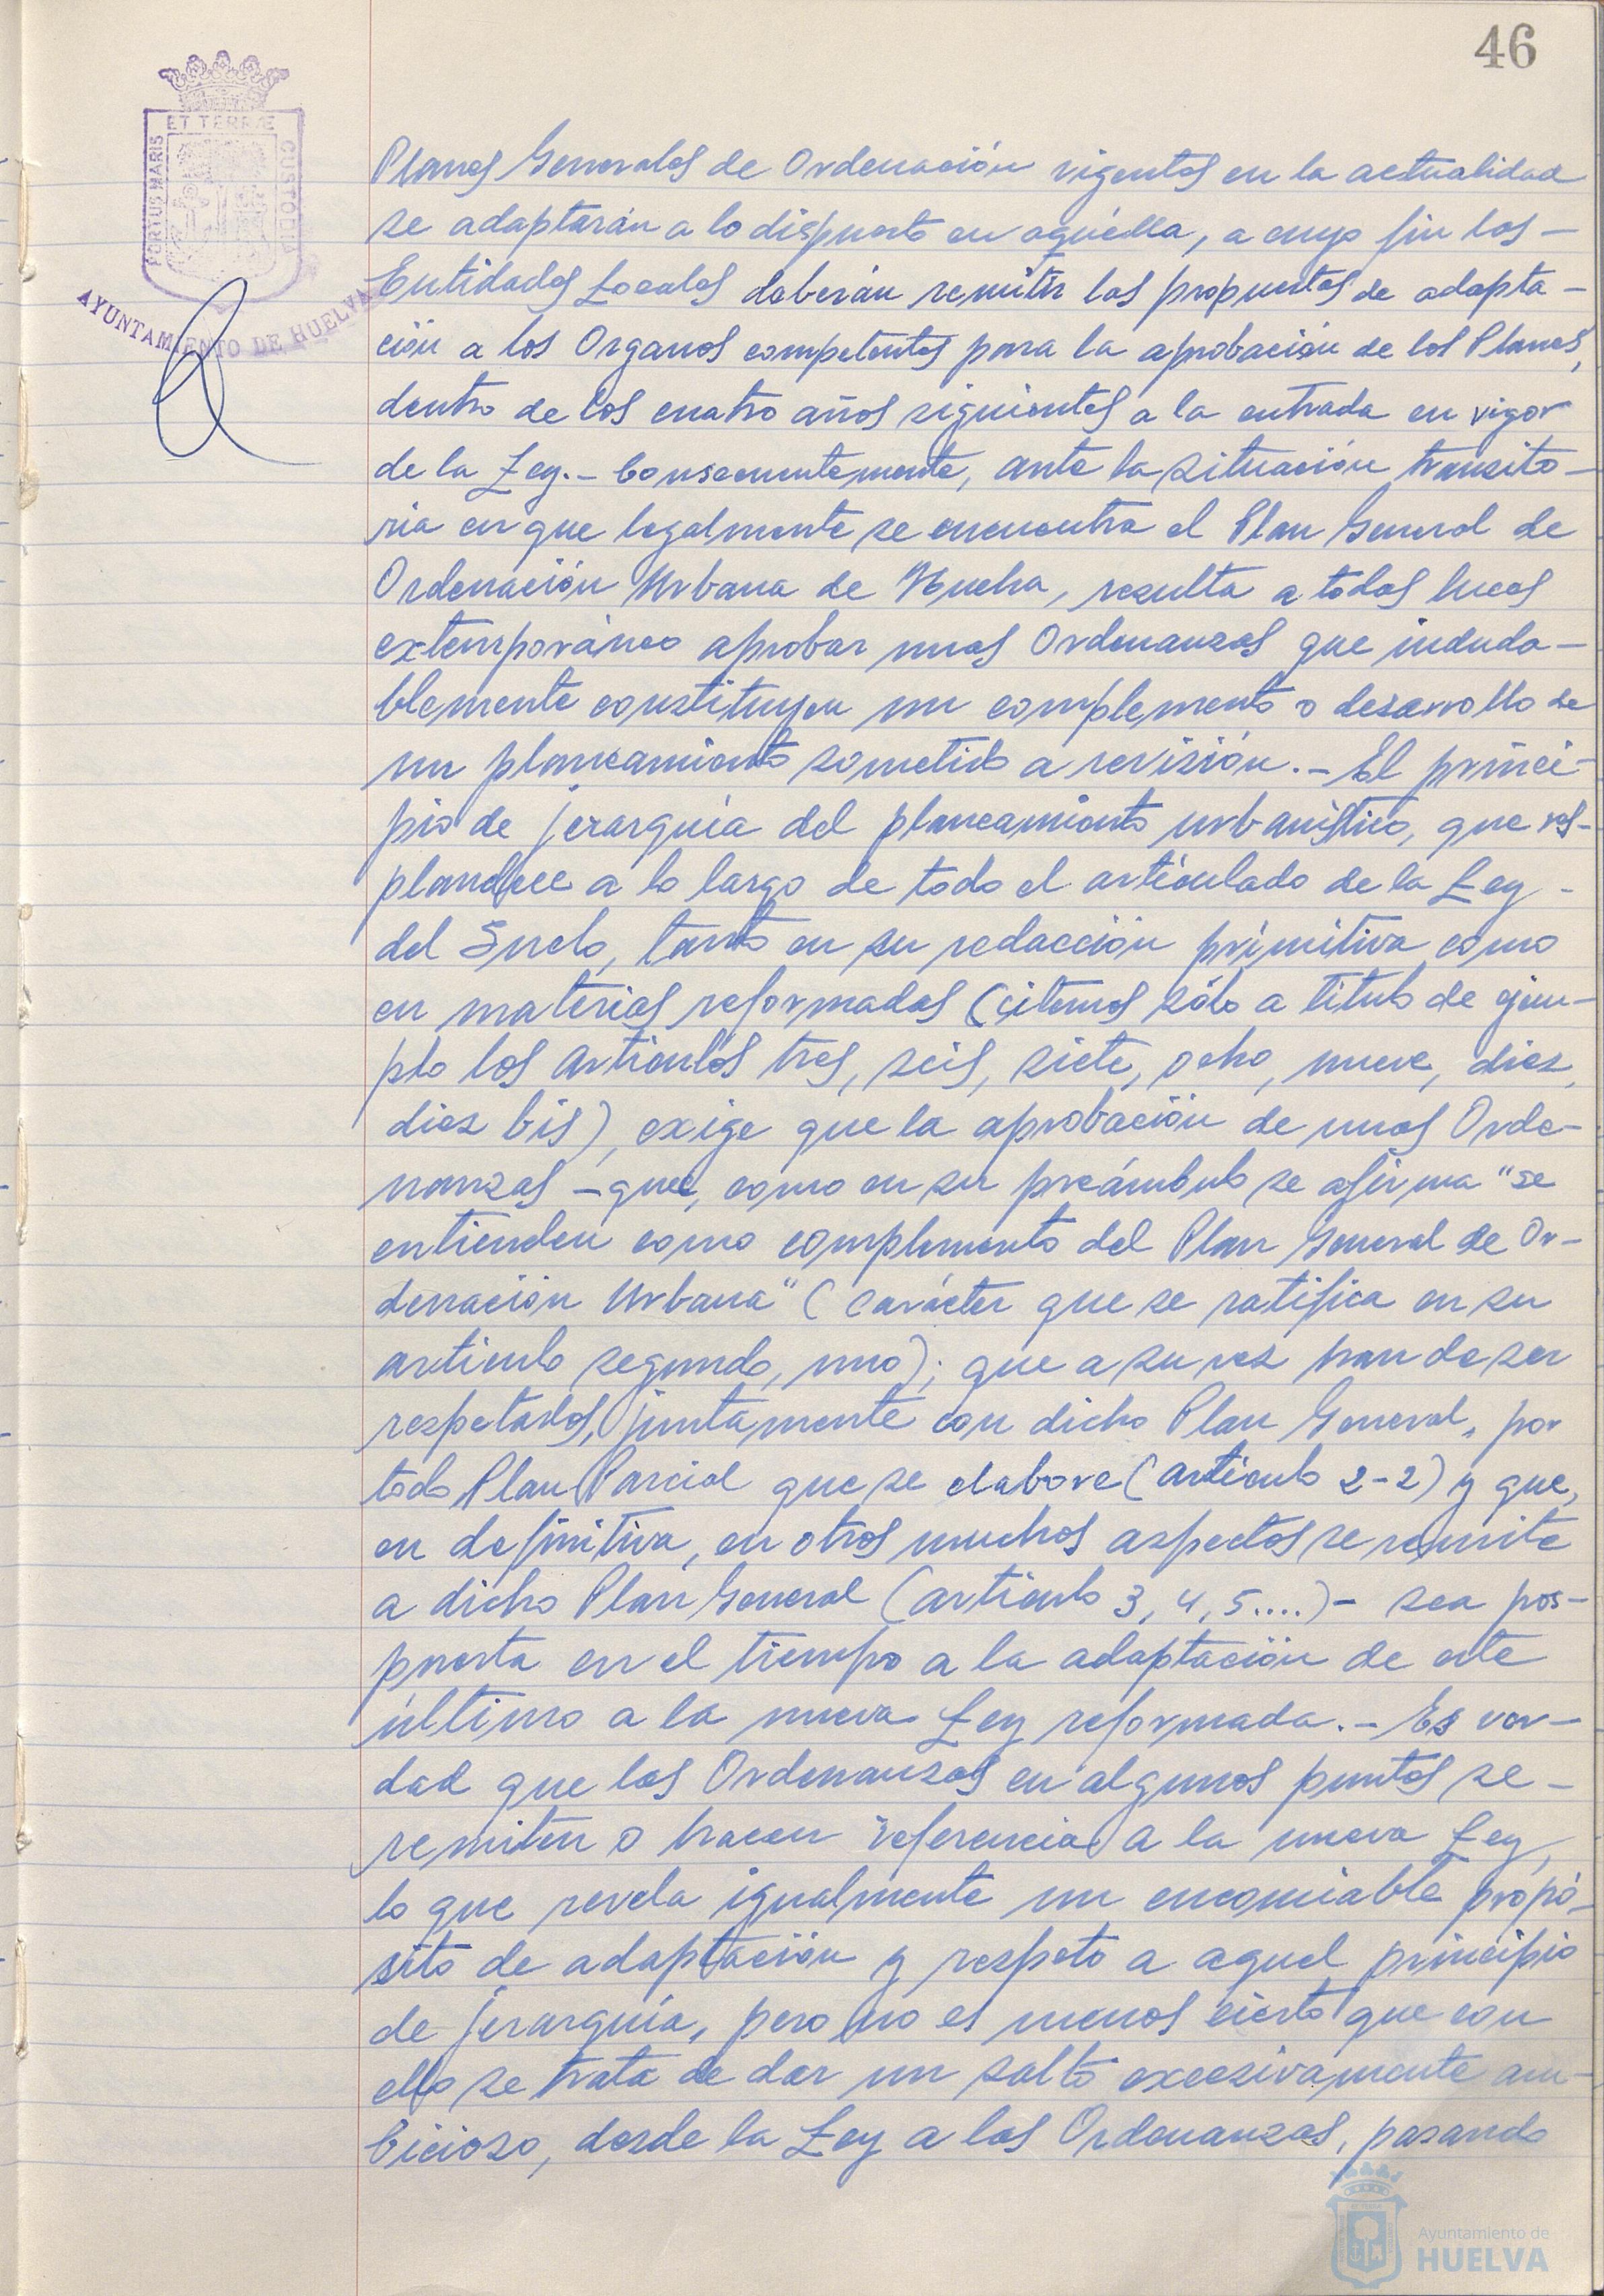 46
ET TERRÆ
PORTUS MARIS
CUSTODIA
AYUNTAMIENTO DE HUELVA
Planes Generales de Ordenación vigentes en la actualidad
se adaptarán a lo dispuesto en aquélla, a cuyo fin las -
Entidades Locales deberán remitir las propuestas de adapta-
ción a los Organos competentes para la aprobación de los Planes,
dentro de los cuatro años siguientes a la entrada en vigor
de la Ley.- Consecuentemente, ante la situación transito-
ria en que legalmente se encuentra el Plan General de
Ordenación Urbana de Huelva, resulta a todas luces
extemporáneo aprobar unas Ordenanzas que induda-
blemente constituyen un complemento o desarrollo de
un planeamiento sometido a revisión.- El princi-
pio de jerarquía del planeamiento urbanístico, que res-
plandece a lo largo de todo el artículado de la Ley -
del Suelo, tanto en su redacción primitiva como
en materias reformadas (citemos sólo a título de ejem-
plo los artículos tres, seis, siete, ocho, nueve, diez,
diez bis), exige que la aprobación de unas Orde-
nanzas -que, como en su preámbulo se afirma "se
entienden como complemento del Plan General de Or-
denación Urbana" (carácter que se ratifica en su
artículo segundo, uno); que a su vez han de ser
respetados, juntamente con dicho Plan General, por
todo Plan Parcial que se elabore (artículo 2-2) y que,
en definitiva, en otros muchos aspectos se remite
a dicho Plan General (artículo 3, 4, 5....)- sea pos-
puesta en el tiempo a la adaptación de este
último a la nueva Ley reformada.- Es ver-
dad que las Ordenanzas en algunos puntos se -
remiten o hacen referencia a la nueva Ley,
lo que revela igualmente un encomiable propó-
sito de adaptación y respeto a aquel principio
de jerarquía, pero no es menos cierto que con
ello se trata de dar un salto excesivamente am-
bicioso, desde la Ley a las Ordenanzas, pasando
Ayuntamiento de
HUELVA